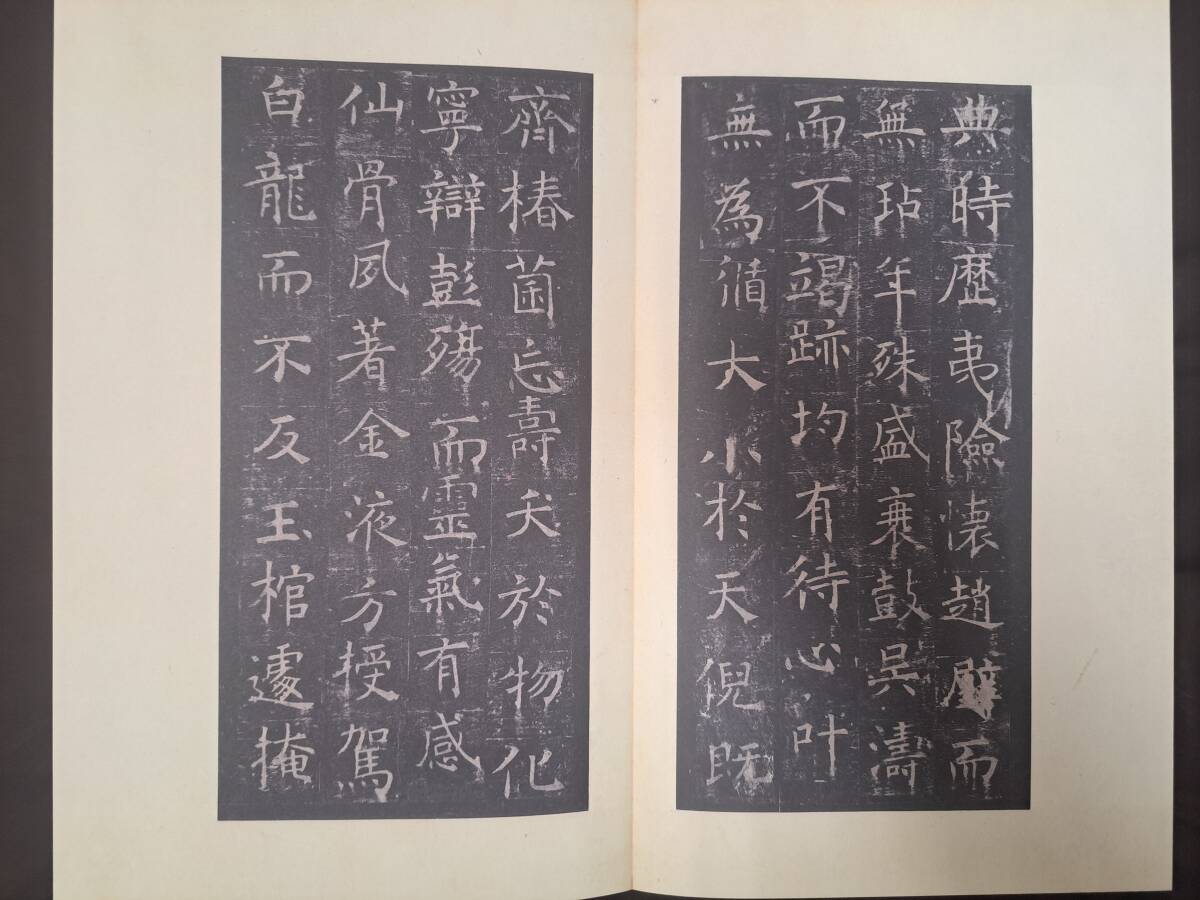 典時歷夷險懷趙璧而
無玷年殊盛衰鼓吳濤
而不竭跡均有待心叶
無為循大小於天倪既
齊椿菌忘壽夭於物化
寧辯彭殤而靈氣有感
仙骨夙著金液方授駕
白龍而不反玉棺遽掩